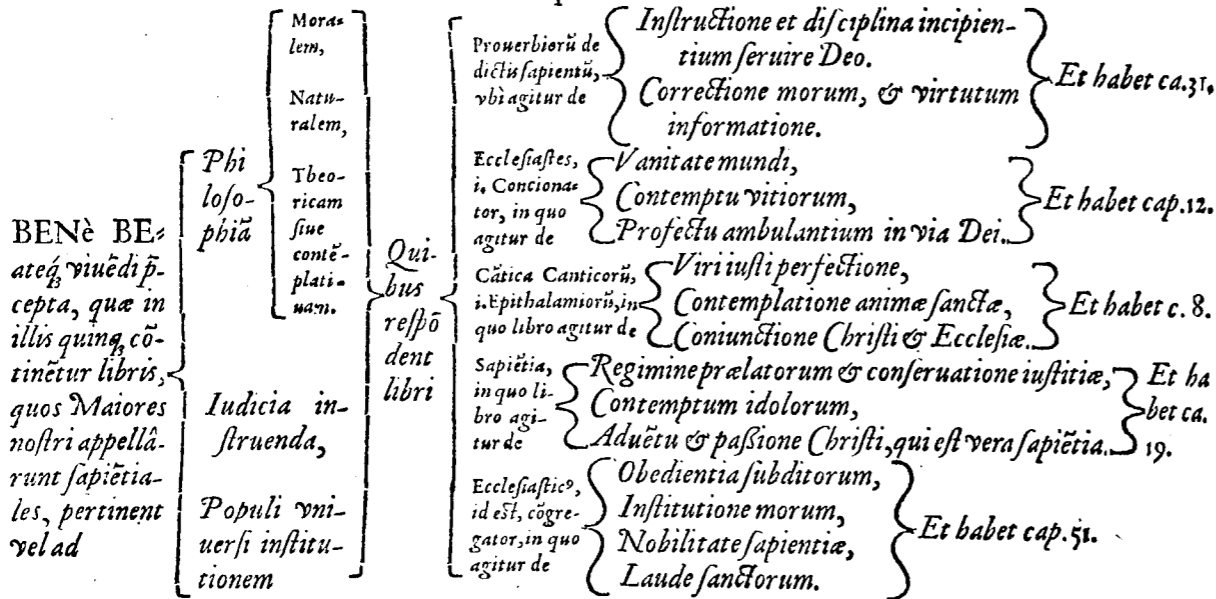 BENè BE-
ateq́ꝫ viuẽdi p̃-
cepta, quæ in
illis quinqꝫ cõ-
tinẽtur libris,
quos Maiores
noſtri appellâ-
runt ſapiẽtia-
les, pertinent
vel ad
Phi
loſo-
phiã
Mora-
lem,
Natu-
ralem,
Theo-
ricam
ſiue
contẽ-
plati-
uam.
Iudicia in-
ſtruenda,
Populi vni-
uerſi inſtitu-
tionem
Qui-
bus
reſpõ
dent
libri
Prouerbiorũ de
dictis ſapientũ,
vbi agitur de
Inſtructione et diſciplina incipien-
tium ſeruire Deo.
Correctione morum, & virtutum
informatione.
Et habet ca.31.
Eccleſiaſtes,
i. Conciona-
tor, in quo
agitur de
Vanitate mundi,
Contemptu vitiorum,
Profectu ambulantium in via Dei.
Et habet cap.12.
Cãtica Canticorũ,
i. Epithalamiorũ, in
quo libro agitur de
Viri iuſti perfectione,
Contemplatione animæ ſanctæ,
Coniunctione Chriſti & Eccleſiæ.
Et habet c. 8.
Sapiẽtia,
in quo li-
bro agi-
tur de
Regimine prælatorum & conſeruatione iuſtitiæ,
Contemptum idolorum,
Aduẽtu & paßione Chriſti, qui eſt vera ſapiẽtia.
Et ha
bet ca.
19.
Eccleſiaſticꝰ,
id eſt, cõgre-
gator, in quo
agitur de
Obedientia ſubditorum,
Inſtitutione morum,
Nobilitate ſapientiæ,
Laude ſanctorum.
Et habet cap. 51.